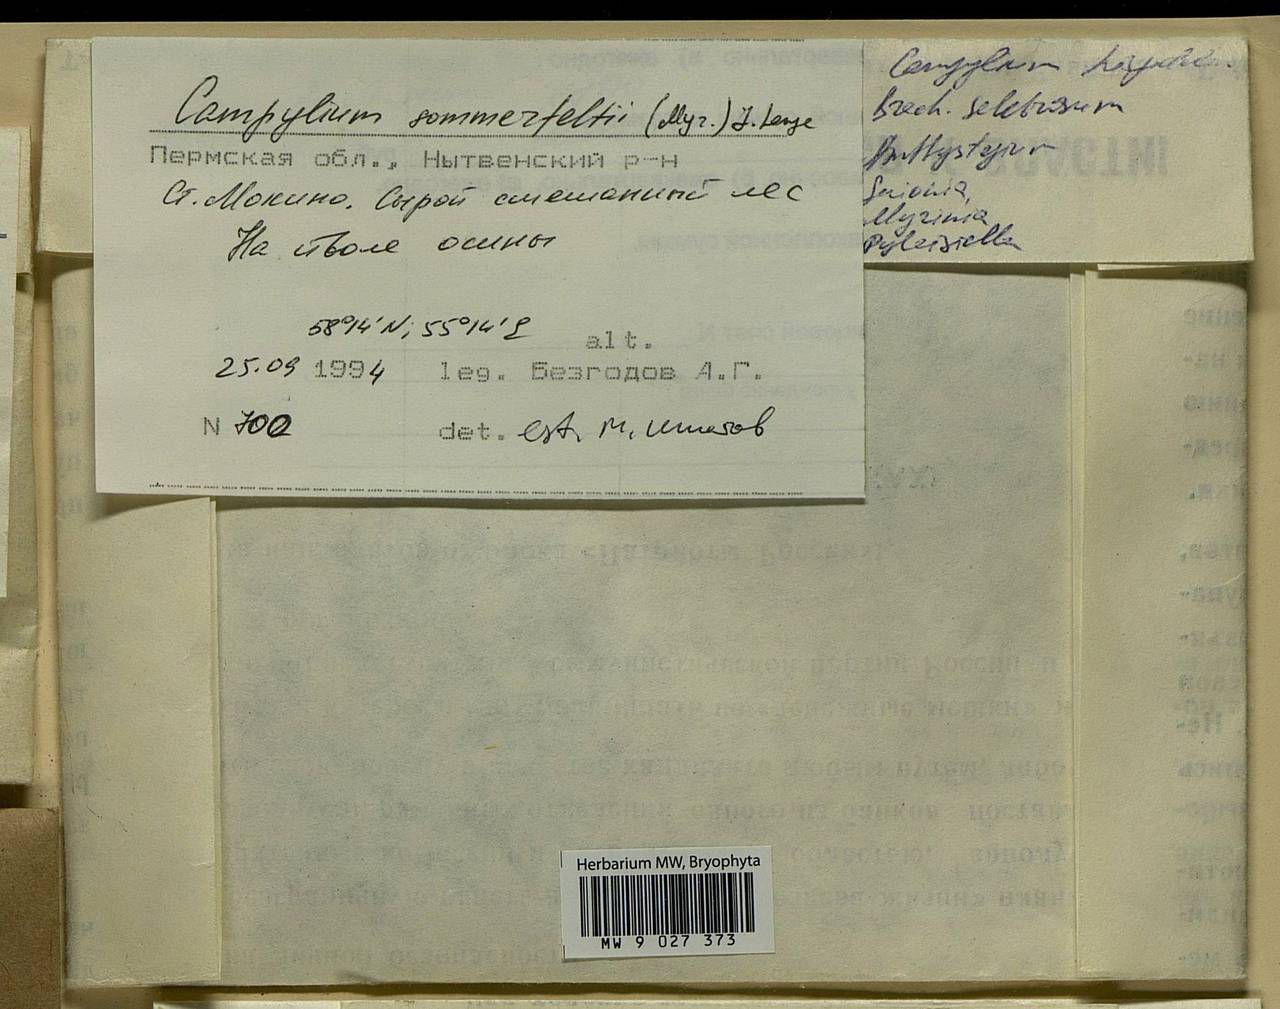 Campylium sommerfeltii (Myr.) J. Lange
Пермская обл., Нытвенский р-н
Ст. Мокино. Сырой смешанный лес
На стволе осины
58°14' N; 55°14' E
alt.
25.09 1994 leg. Безгодов А.Г.
N 700 det. est. М. Игнатов
Campylium
Brach. salebrosum
Amblystegium
Myrinia
Pylaisiella
Herbarium MW, Bryophyta
MW 9 027 373